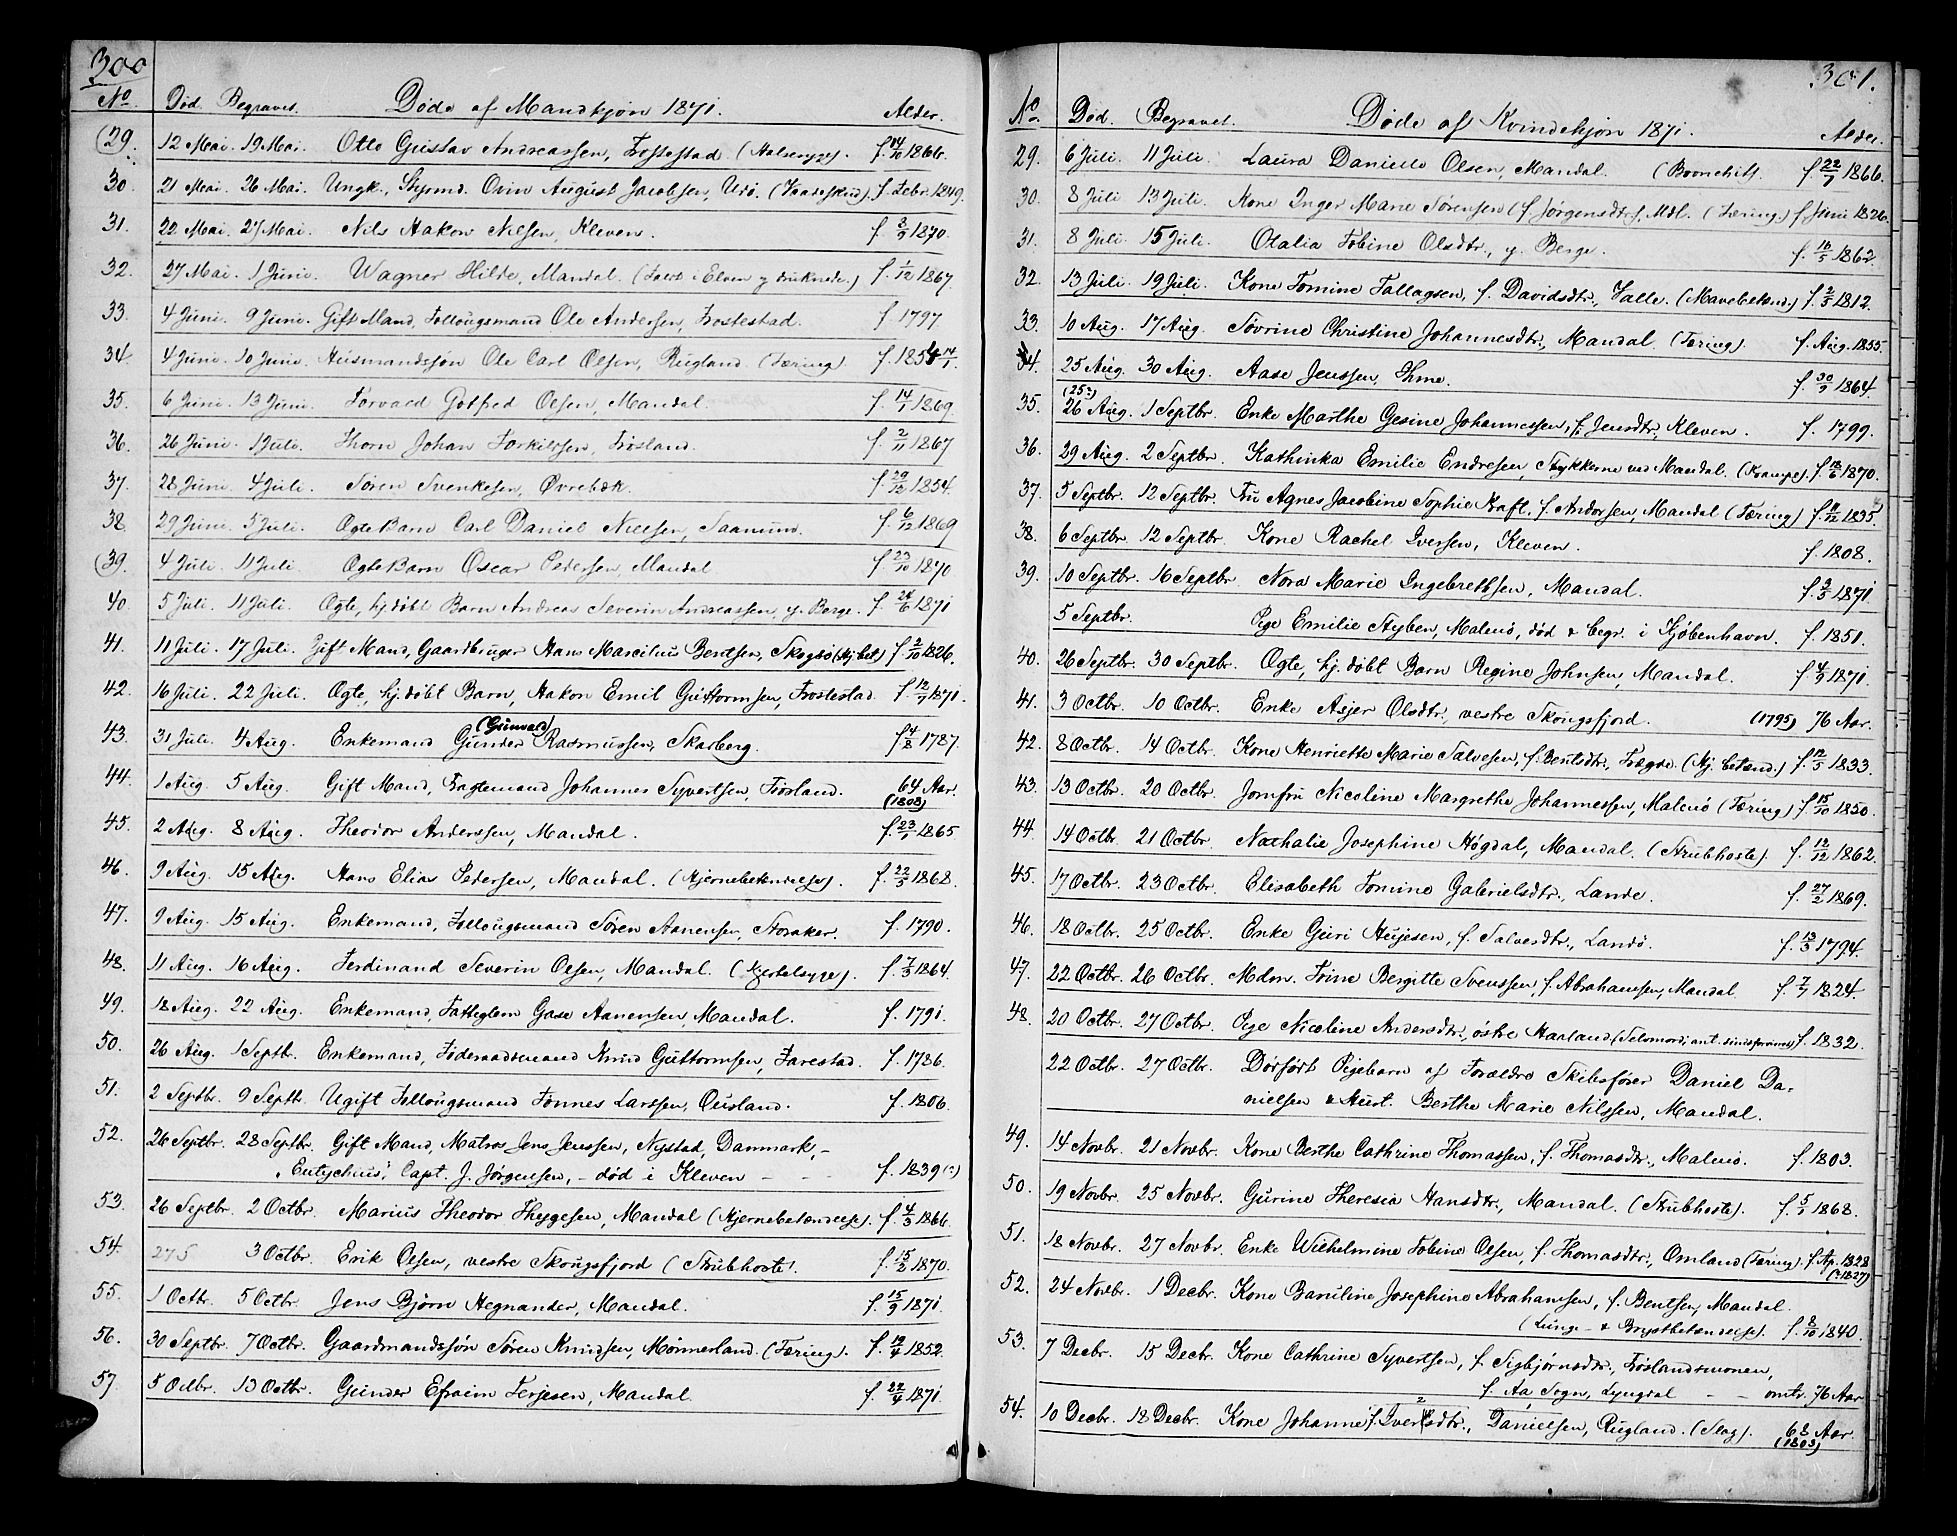 300
No. Död. Begravet. Döde af Mandkjøn 1871. Alder.
29. 12 Mai. 19 Mai. Otto Gustav Andreassen, Frostestad. (Halssyge). f. 14/10 1866.
30. 21 Mai. 26 Mai. Ungk., Styrmd. Ovin August Jacobsen, Udö. f. Febr. 1849.
31. 22 Mai. 27 Mai. Nils Hakon Nilsen, Kleven. f. 3/9 1870.
32. 27 Mai. 1 Juni. Wagner Hilde, Mandal. (Faldt i Elven og druknede.) f. 1/12 1867.
33. 4 Juni. 9 Juni. Gift Mand, Follougsmand Ole Andersen, Frostestad. f. 1797.
34. 4 Juni. 10 Juni. Husmandssøn Ole Carl Olsen, Rugland. (Tæring) f. 1854 14/7.
35. 6 Juni. 13 Juni. Torvald Gotfred Olsen, Mandal. f. 14/7 1869.
36. 26 Juni. 1 Juli. Thorn Johan Torkildsen, Frøsland. f. 2/11 1867
37. 28 Juni. 4 Juli. Sören Svenkesen, Øvrebæk. f. 29/12 1854.
38. 29 Juni. 5 Juli. Ogte Barn Carl Daniel Nilsen, Saanum. f. 6/12 1869
39. 4 Juli. 11 Juli. Ogte Barn Oscar Pedersen, Mandal f. 23/10 1870
40. 5 Juli. 11 Juli. Ogte, hj. döbt Barn Andreas Severin Andreassen, y. Berge. f. 24/6 1871
41. 11 Juli. 17 Juli. Gift Mand, Gaardbruger Hans Marcelius Bentsen, Skogsö (Hj. bet) f. 2/10 1826.
42. 16 Juli. 22 Juli. Ogte, hj. döbt Barn, Hakon Emil Guttormsen, Frostestad. f. 12/7 1871.
(Gunvald)
43. 31 Juli. 4 Aug. Enkemand Gunder Rasmussen, Skarberg. f. 4/8 1787.
44. 1 Aug. 5 Aug. Gift Mand, Fragtemand Johannes Syvertsen, Frøsland. 64 Aar.
(1808)
45. 2 Aug. 8 Aug. Theodor Anderssen, Mandal. f. 23/1 1865.
46. 9 Aug. 15 Aug. Hans Elias Pedersen, Mandal. (Hjernebetændelse). f. 22/5 1868.
47. 9 Aug. 15 Aug. Enkemand, Follougsmand Sören Aanensen, Storaker. f. 1790.
48. 11 Aug. 16 Aug. Ferdinand Severin Olsen, Mandal. (Kjertelsyge). f. 7/3 1864.
49. 18 Aug. 22 Aug. Enkemand, Fattiglem Gase Aanensen, Mandal. f. 1791.
50. 26 Aug. 1 Septb. Enkemand, Föderaadsmand Knud Guttormsen, Jarestad. f. 1786.
51. 2 Septbr. 9 Septb. Ugift Follougsmand Tønnes Larssen, Ousland. f. 1806.
52. 26 Septbr. 28 Septbr. Gift Mand, Matros Jens Jenssen, Nystad, Danmark, -
"Eutychius", Capt. J. Jörgensen, - död i Kleven - - - f. 1839 (?)
53. 26 Septbr. 2 Octbr. Marius Theodor Thygesen, Mandal (Hjernebetændelse). f. 4/3 1866.
54. 27 S 3 Octbr. Erik Olsen, vestre Skougsfjord (Strubhoste). f. 15/2 1870.
55. 1 Octbr. 5 Octbr. Jens Bjørn Hegnander, Mandal. f. 15/9 1871.
56. 30 Septbr. 7 Octbr. Gaardmandssön Sören Knudsen, Mönnerland. (Tæring). f. 12/4 1852.
57. 5 Octbr. 13 Octbr. Gunder Efraim Terjesen, Mandal. f. 22/4 1871.
301.
No. Död. Begravet. Döde af Kvindekjøn 1871. Alder.
29. 6 Juli. 11 Juli. Laura Danielle Olsen, Mandal. (Bronchit). f. 22/7 1866.
30. 8 Juli 13 Juli. Kone Inger Marie Sörensen (f. Jörgensdtr), Mdl. (Tæring.) f. Juni 1826.
31. 8 Juli. 15 Juli. Otalia Tobine Olsdtr., y. Berge. f. 16/5 1862.
32. 13 Juli. 19 Juli. Kone Tomine Tallagsen, f. Davidsdtr., Valle. (Mavebetænd.) f. 2/5 1812.
33. 10 Aug. 17 Aug. Sövrine Christine Johannesdtr., Mandal. (Tæring). f. Aug. 1855.
34. 25 Aug. 30 Aug. Aase Jenssen, Ihme. f. 30/9 1864.
(25?)
35. 26 Aug. 1 Septbr. Enke Marthe Gesine Johannessen, f. Jensdtr., Kleven. f. 1799.
36. 29 Aug. 2 Septbr. Kathinka Emilie Endresen, Stykkerne ved Mandal. (Krampe). f. 18/6 1870.
37. 5 Septbr. 12 Septbr. Fru Agnes Jacobine Sophie Kraft, f. Andorsen, Mandal (Tæring) f. 11/12 1835.
38. 6 Septbr. 12 Septbr. Kone Rachel Iversen, Kleven. f. 1808.
39. 10 Septbr. 16 Septbr. Nora Marie Ingebrethsen, Mandal. f. 3/3 1871.
5 Septbr. Pige Emilie Styben, Malmö, död & begr. i Kjöbenhavn. f. 1851.
40. 26 Septbr. 30 Septbr. Ogte, hj. döbt Barn Regine Johnsen, Mandal. f. 4/9 1871.
41. 3 Octbr. 10 Octbr. Enke Asjer Olsdtr., vestre Skougsfjord. (1795) 76 Aar.
42. 8 Octbr. 14 Octbr. Kone Henriette Marie Salvesen, f. Bentsdtr., Trægde. (Hj. betænd.) f. 12/5 1833.
43. 13 Octbr. 20 Octbr. Jomfru Nicoline Margrethe Johannessen, Malmö (Tæring) f. 15/10 1850.
44. 14 Octbr. 21 Octbr. Nathalie Josephine Høgdal, Mandal. (Strubhoste). f. 12/12 1862.
45. 17 Octbr. 23 Octbr. Elisabeth Tomine Gabrielsdtr., Lande. f. 27/2 1869.
46. 18 Octbr. 25 Octbr. Enke Guri Heyesen, f. Salvesdtr., Landö. f. 13/3 1794.
47. 22 Octbr. 26 Octbr. Mdm. Trine Bergitte Svenssen, f. Abrahamsen, Mandal f. 7/7 1824.
48. 20 Octbr. 27 Octbr. Pige Nicoline Andersdtr., östre Haaland (Selvmord; ant. sindsforvirret) f. 1832.
22 Octbr. 27 Octbr. Dödfödt Pigebarn af Forældre Skibsfører Daniel Da-
nielsen & Hust. Berthe Marie Nilssen, Mandal.
49. 14 Novbr. 21 Novbr. Kone Berthe Cathrine Thomassen, f. Thomasdtr., Malmö. f. 1803.
50. 19 Novbr. 25 Novbr. Gurine Theresia Hansdtr., Mandal. (Strubhoste). f. 5/1 1868.
51. 18 Novbr. 27 Novbr. Enke Wilhelmine Tobine Olsen, f. Thomasdtr., Omland (Tæring). f. Ap. 1828
(?1827)
52. 24 Novbr. 1 Decbr. Kone Bauline Josephine Abrahamsen, f. Bentsen, Mandal.
(Lunge- & Brystbetændelse). f. 8/10 1840.
53. 7 Decbr. 15 Decbr. Kone Cathrine Syvertsen, f. Sigbjörnsdtr., Frøslandsmonen,
f. Aa Sogn, Lyngdal - - omtr. 76 Aar
54. 10 Decbr. 18 Decbr. Kone Johanne f. Iversdtr., Danielsen, Rugland. (Slag). 68 Aar.
(1803)